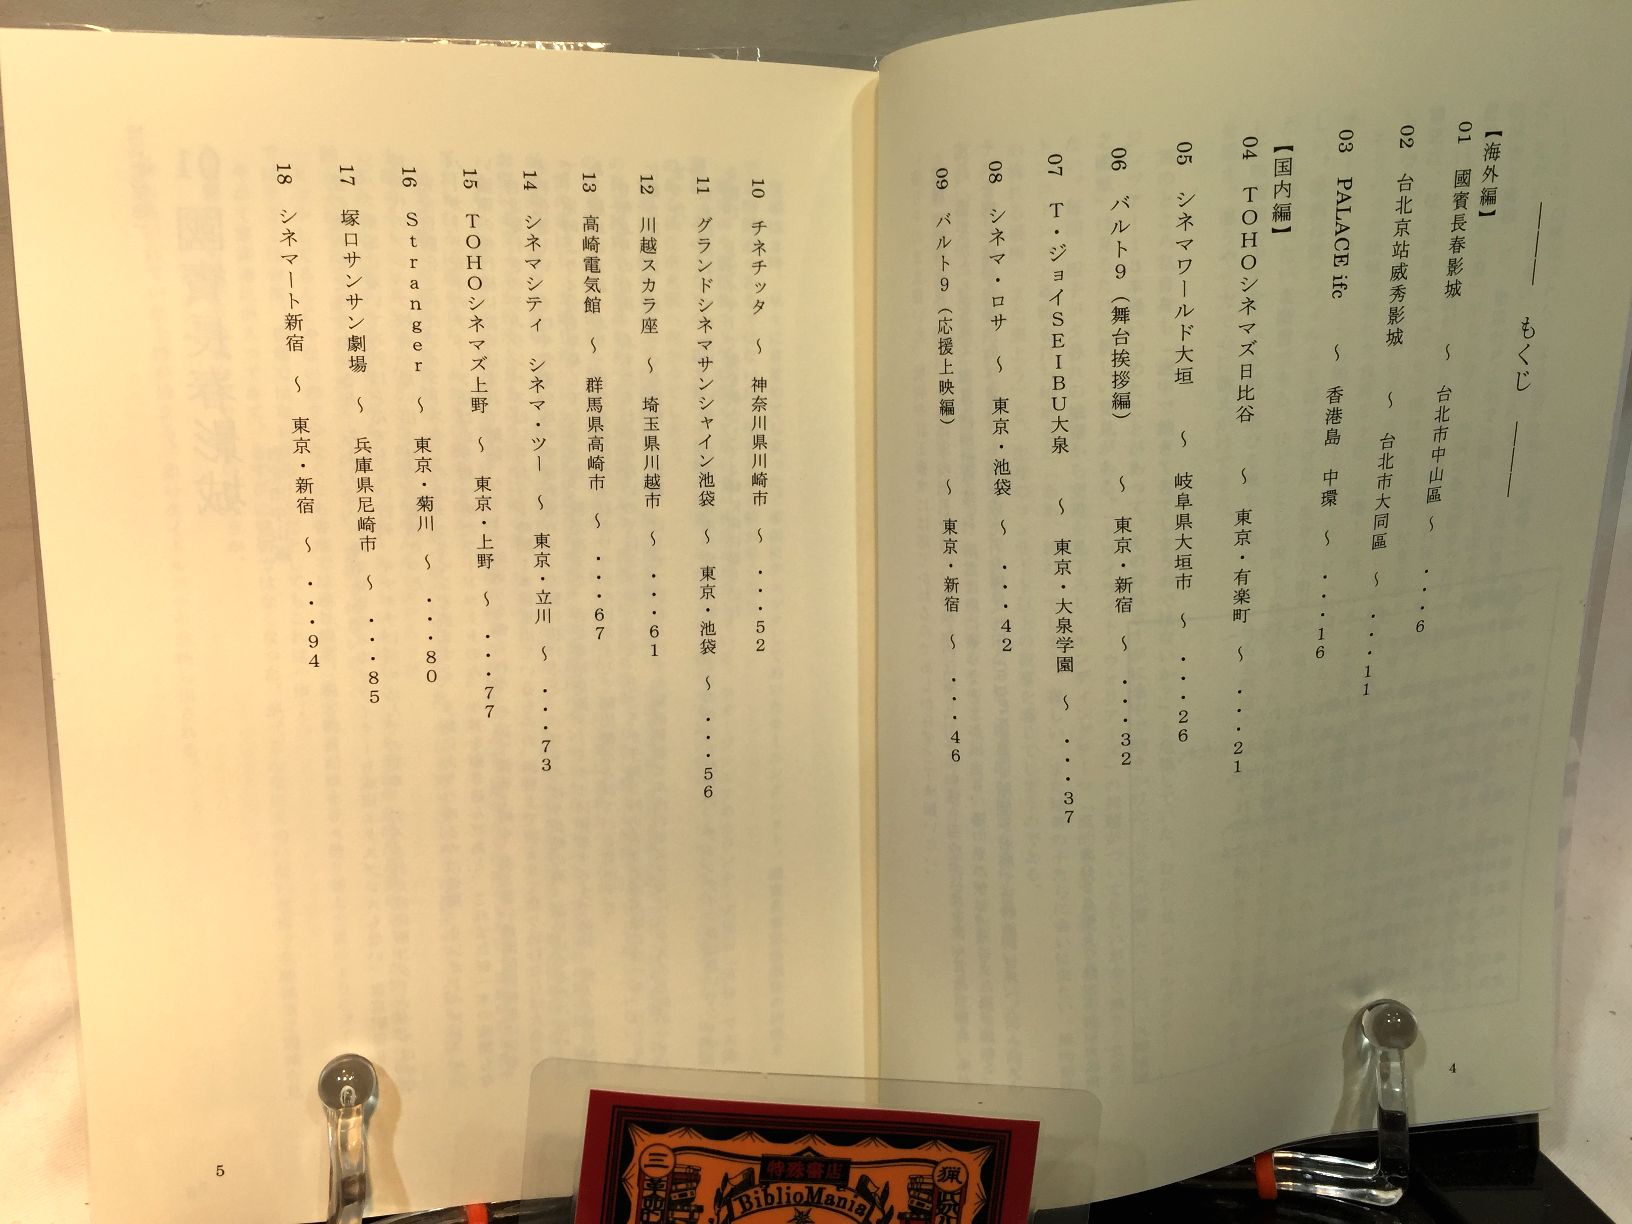 もくじ
【海外編】
01 國賓長春影城 ～ 台北市中山區 ～ ・・・6
02 台北京站威秀影城 ～ 台北市大同區 ～ ・・・11
03 PALACE ifc ～ 香港島 中環 ～ ・・・16
【国内編】
04 TOHOシネマズ日比谷 ～ 東京・有楽町 ～ ・・・21
05 シネマワールド大垣 ～ 岐阜県大垣市 ～ ・・・26
06 バルト9（舞台挨拶編） ～ 東京・新宿 ～ ・・・32
07 T・ジョイSEIBU大泉 ～ 東京・大泉学園 ～ ・・・37
08 シネマ・ロサ ～ 東京・池袋 ～ ・・・42
09 バルト9（応援上映編） ～ 東京・新宿 ～ ・・・46
4
10 チネチッタ ～ 神奈川県川崎市 ～ ・・・52
11 グランドシネマサンシャイン池袋 ～ 東京・池袋 ～ ・・・56
12 川越スカラ座 ～ 埼玉県川越市 ～ ・・・61
13 高崎電気館 ～ 群馬県高崎市 ～ ・・・67
14 シネマシティ シネマ・ツー ～ 東京・立川 ～ ・・・73
15 TOHOシネマズ上野 ～ 東京・上野 ～ ・・・77
16 Stranger ～ 東京・菊川 ～ ・・・80
17 塚口サンサン劇場 ～ 兵庫県尼崎市 ～ ・・・85
18 シネマート新宿 ～ 東京・新宿 ～ ・・・94
5
特殊書店
BiblioMania